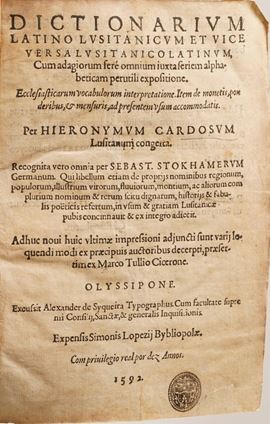 DICTIONARIVM
LATINO LVSITANICVM ET VICE
VERSA LVSITANICO LATINVM,
Cum adagiorum ferè omnium iuxta seriem alpha-
beticam perutili expositione.
Ecclesiasticarum vocabulorum interpretatione. Item de monetis, pon
deribus, & mensuris, ad præsentem vsum accommodatis.
Per HIERONYMVM CARDOSVM
Lusitanum congesta.
Recognita vero omnia per SEBAST. STOKHAMERVM
Germanum. Qui libellum etiam de proprijs nominibus regionum,
populorum, illustrium virorum, fluuiorum, montium, ac aliorum com
plurium nominum & rerum scitu dignatum, historijs & fabu-
lis poeticis refertum, in vsum & gratiam Lusitanicæ
pubis concinnauit & ex integro adiecit.
Adhuc noui huic vltimæ impressioni adjuncti sunt varij lo
quendi modi ex præcipuis auctoribus decerpti, præser-
tim ex Marco Tullio Cicerone.
OLYSSIPONE.
Excussit Alexander de Syqueira Typographus. Cum facultate supre
mi Consilij, Sanctæ, & generalis Inquisitionis.
Expensis Simonis Lopezij Bybliopolæ.
Com priuilegio real por dez Annos.
1592.